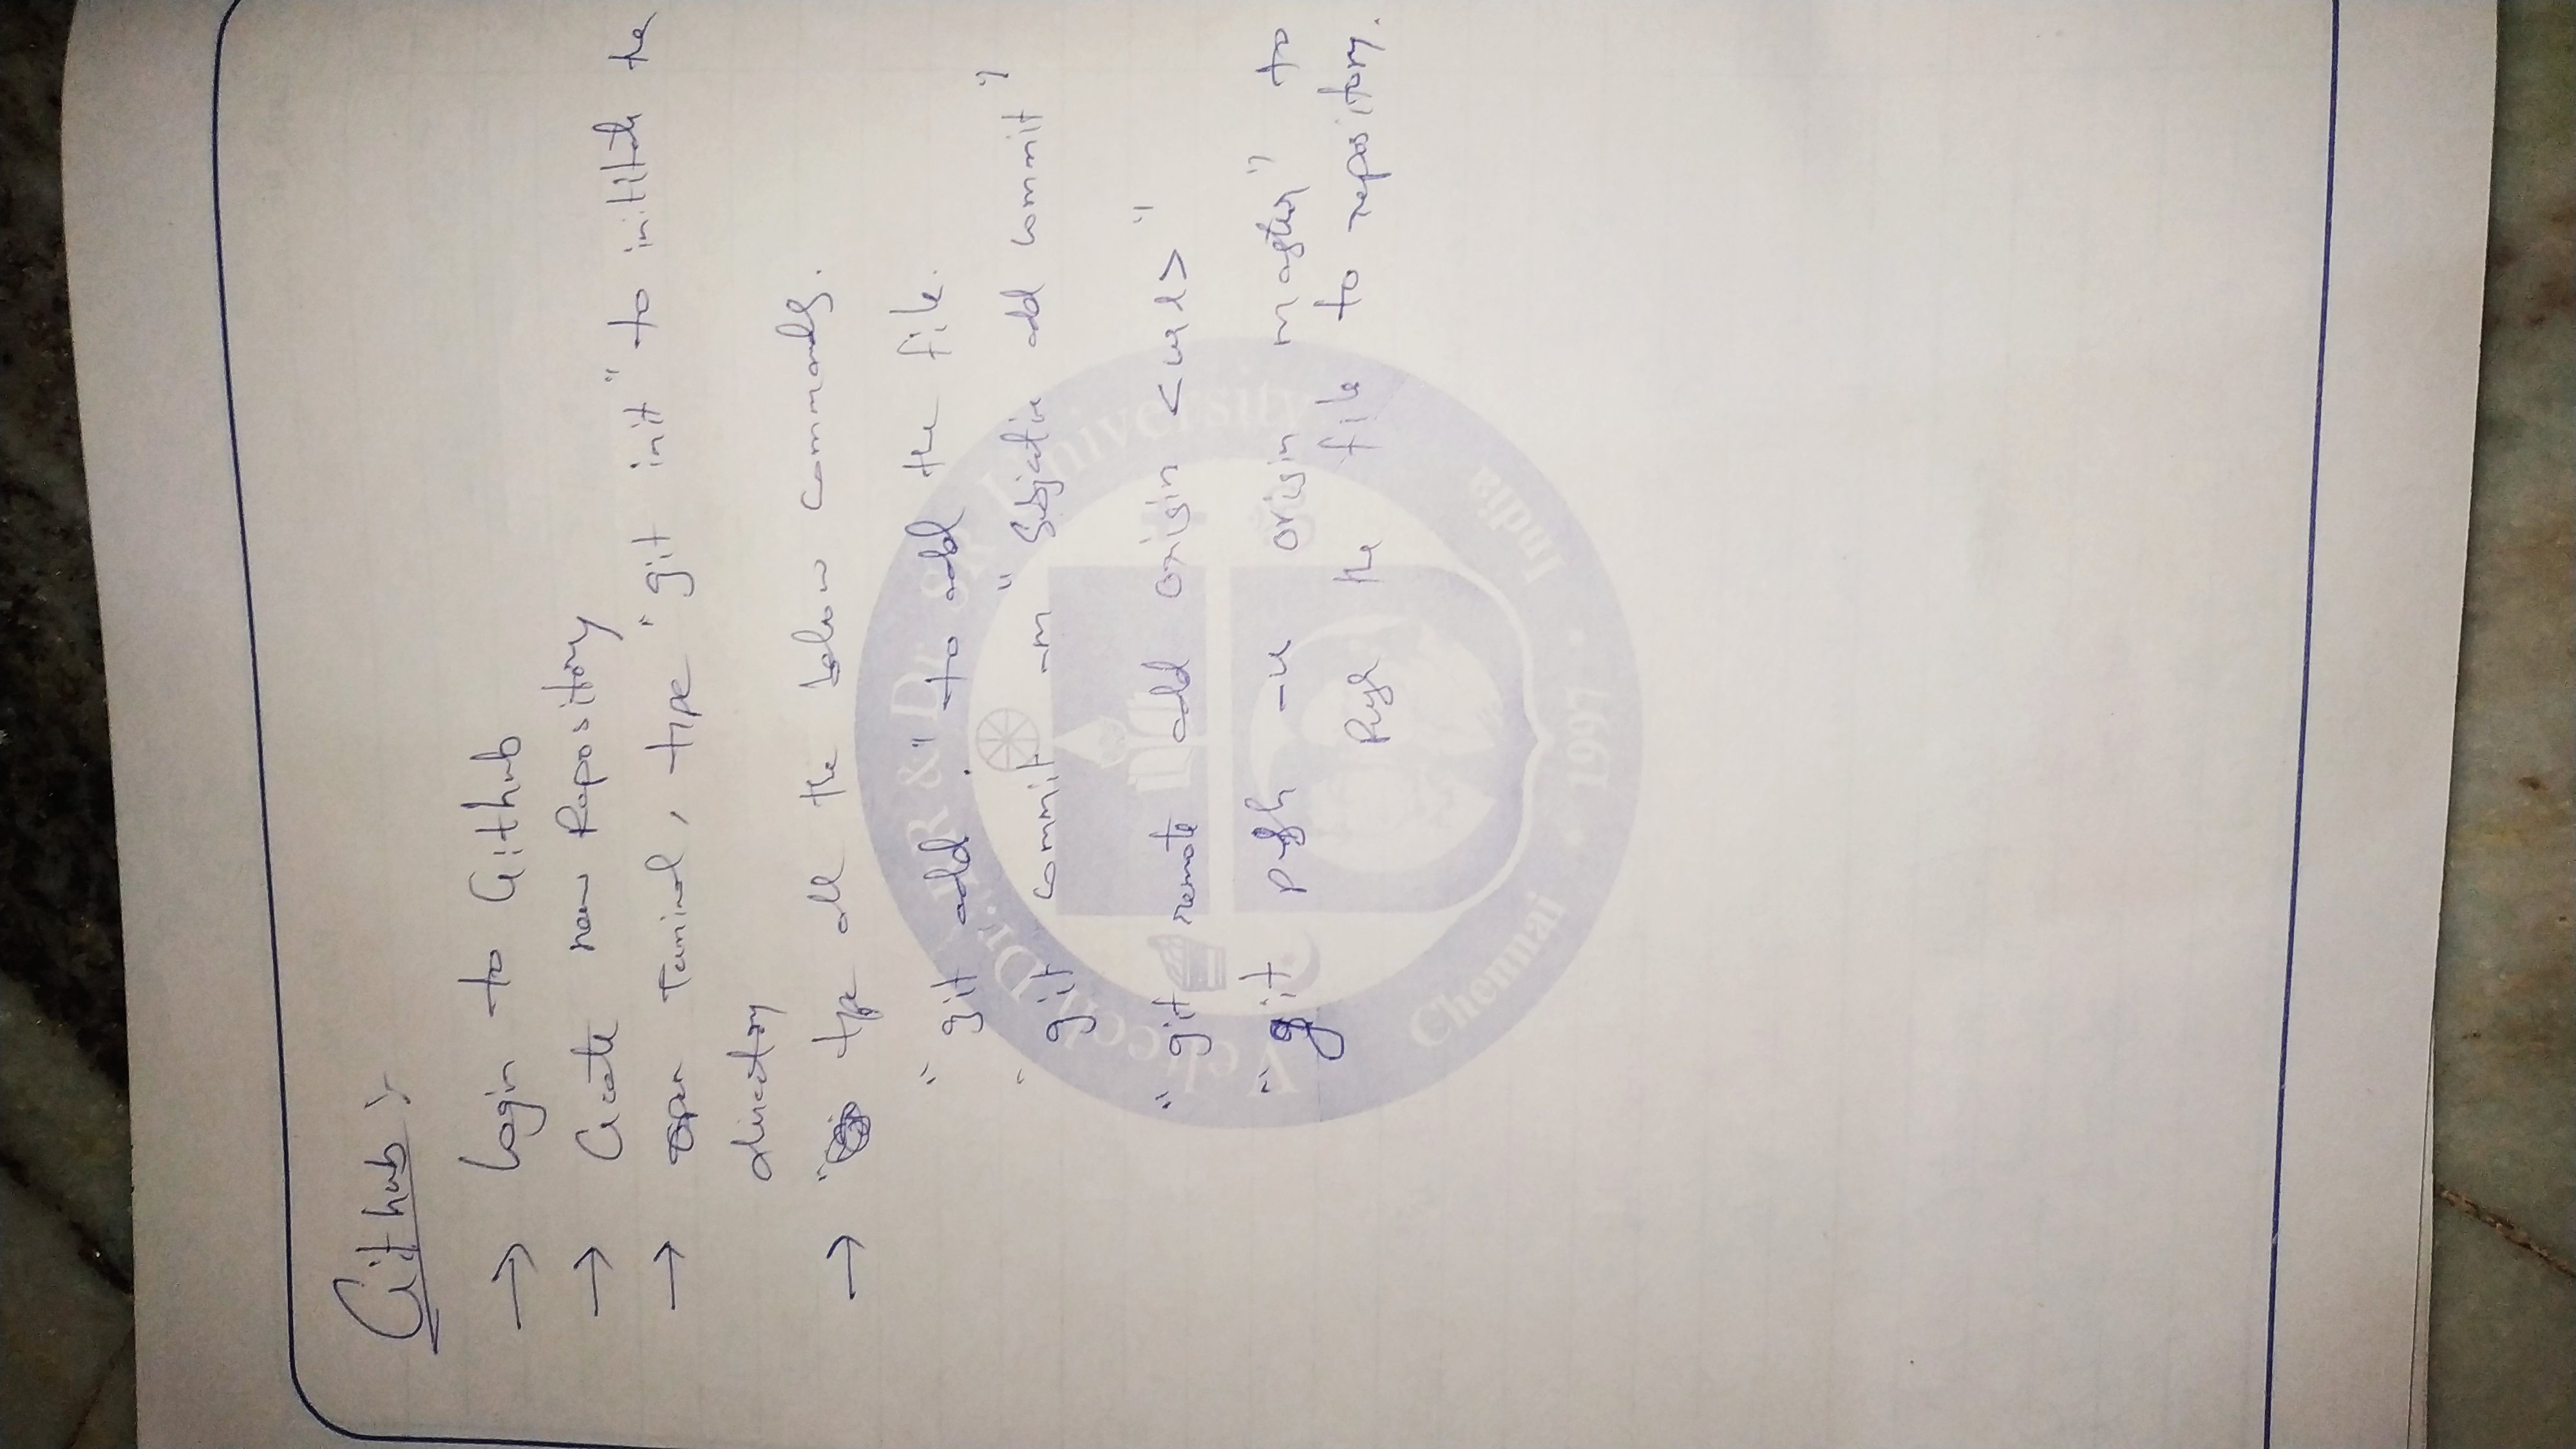 Github :-
→ Login to Github
→ Create new Repository
→ open Terminal, type "git init" to inititate the
directory
→ type all the below commands.
"git add ." to add the file.
"git commit -m "Subjective add commit"
"git remote add origin <url>"
"git push -u origin master" to
Push the file to repository.
Veltech Dr. RR & Dr. SR University
Chennai
India
1997